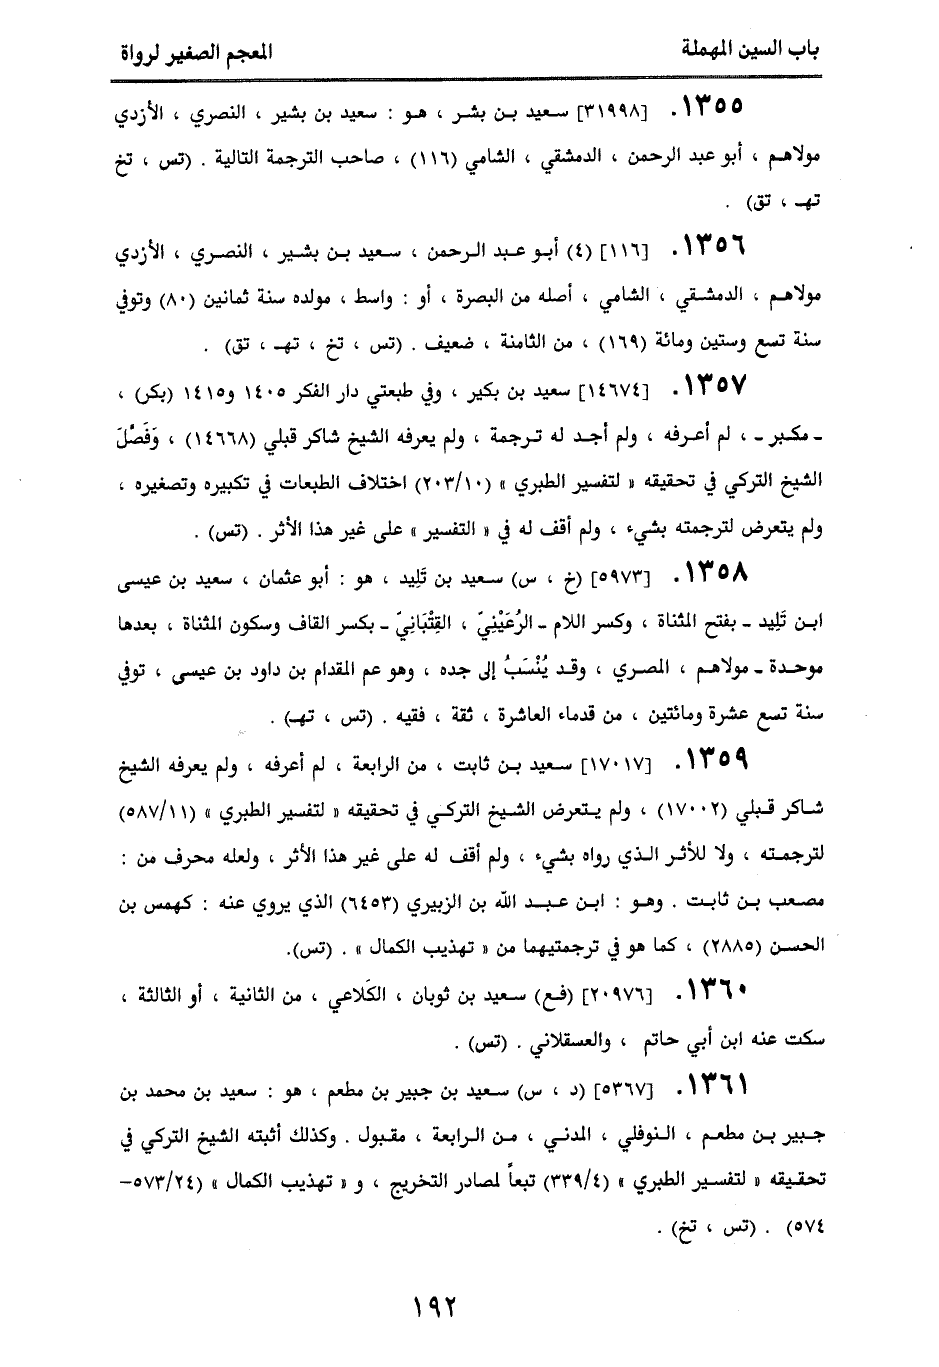 باب السين المهملة
المعجم الصغير لرواة
١٣٥٥. [٣١٩٩٨] سعيد بن بشر ، هو : سعيد بن بشير ، النصري ، الأزدي
مولاهم ، أبو عبد الرحمن ، الدمشقي ، الشامي (١١٦) ، صاحب الترجمة التالية . (تس ، تخ
تهـ ، تق) .
١٣٥٦. [١١٦] (٤) أبو عبد الرحمن ، سعيد بن بشير ، النصري ، الأزدي
مولاهم ، الدمشقي ، الشامي ، أصله من البصرة ، أو : واسط ، مولده سنة ثمانين (٨٠) وتوفي
سنة تسع وستين ومائة (١٦٩) ، من الثامنة ، ضعيف . (تس ، تخ ، تهـ ، تق) .
١٣٥٧. [١٤٦٧٤] سعيد بن بكير ، وفي طبعتي دار الفكر ١٤٠٥ و١٤١٥ (بكر) ،
ـ مكبر ـ ، لم أعرفه ، ولم أجد له ترجمة ، ولم يعرفه الشيخ شاكر قبلي (١٤٦٦٨) ، وَفَصَّلَ
الشيخ التركي في تحقيقه « لتفسير الطبري » (٢٠٣/١٠) اختلاف الطبعات في تكبيره وتصغيره ،
ولم يتعرض لترجمته بشيء ، ولم أقف له في « التفسير » على غير هذا الأثر . (تس) .
١٣٥٨. [٥٩٧٣] (خ ، س) سعيد بن تَلِيد ، هو : أبو عثمان ، سعيد بن عيسى
ابن تَلِيد ـ بفتح المثناة ، وكسر اللام ـ الرُعَيْنِيّ ، القِتْبَانِيّ ـ بكسر القاف وسكون المثناة ، بعدها
موحدة ـ مولاهم ، المصري ، وقد يُنْسَبُ إلى جده ، وهو عم المقدام بن داود بن عيسى ، توفي
سنة تسع عشرة ومائتين ، من قدماء العاشرة ، ثقة ، فقيه . (تس ، تهـ) .
١٣٥٩. [١٧٠١٧] سعيد بن ثابت ، من الرابعة ، لم أعرفه ، ولم يعرفه الشيخ
شاكر قبلي (١٧٠٠٢) ، ولم يتعرض الشيخ التركي في تحقيقه « لتفسير الطبري » (٥٨٧/١١)
لترجمته ، ولا للأثر الذي رواه بشيء ، ولم أقف له على غير هذا الأثر ، ولعله محرف من :
مصعب بن ثابت . وهو : ابن عبد الله بن الزبيري (٦٤٥٣) الذي يروي عنه : كهمس بن
الحسن (٢٨٨٥) ، كما هو في ترجمتيهما من « تهذيب الكمال » . (تس).
١٣٦٠. [٢٠٩٧٦] (فع) سعيد بن ثوبان ، الكَلاعي ، من الثانية ، أو الثالثة ،
سكت عنه ابن أبي حاتم ، والعسقلاني . (تس) .
١٣٦١. [٥٣٦٧] (د ، س) سعيد بن جبير بن مطعم ، هو : سعيد بن محمد بن
جبير بن مطعم ، النوفلي ، المدني ، من الرابعة ، مقبول . وكذلك أثبته الشيخ التركي في
تحقيقه « لتفسير الطبري » (٣٣٩/٤) تبعاً لمصادر التخريج ، و « تهذيب الكمال » (٥٧٣/٢٤–
٥٧٤) . (تس ، تخ) .
١٩٢